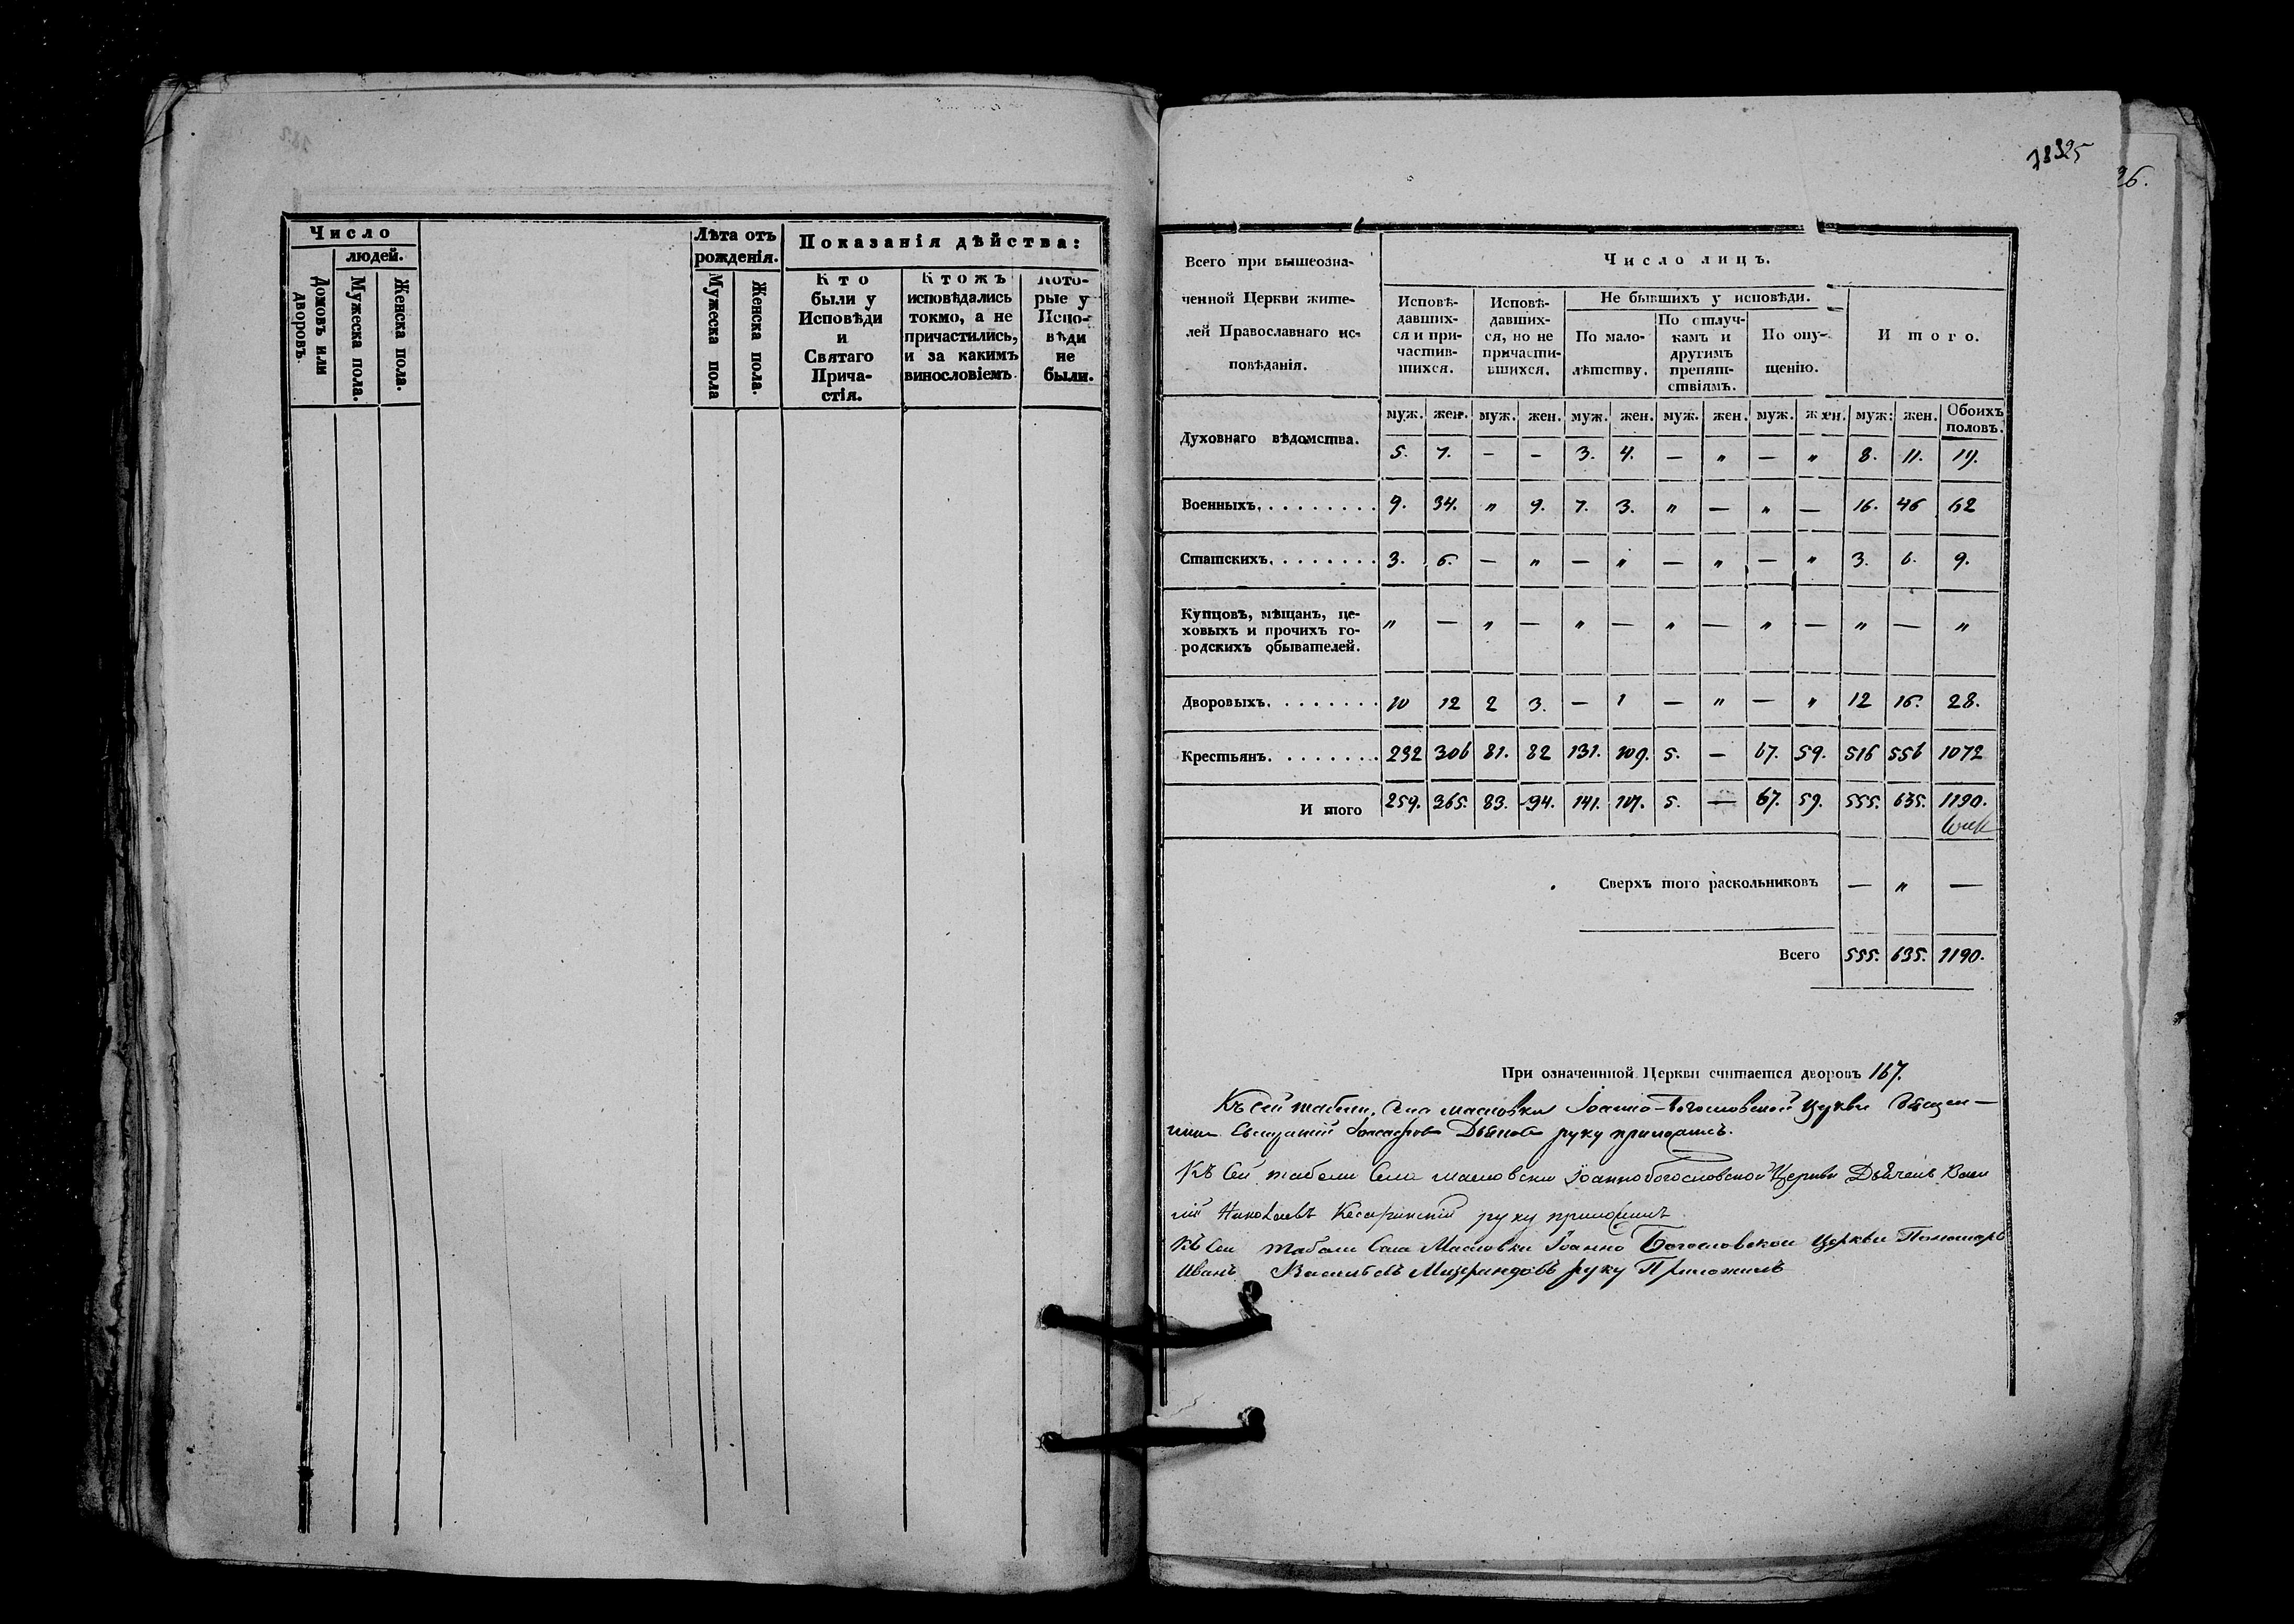 Число
людей.
Домовъ или дворовъ.
Мужеска пола.
Женска пола.
Лѣта отъ
рожденія.
Мужеска пола
Женска пола.
Показанія дѣйства:
Кто
были у
Исповѣди
и
Святаго
Прича-
стія.
Ктожъ
исповѣдались
токмо, а не
причастились,
и за какимъ
винословіемъ.
Кото-
рые у
Испо-
вѣди
не
были.
26.
Всего при вышеозна-
ченной Церкви жите-
лей Православнаго ис-
повѣданія.
Число лицъ.
Исповѣ-
давших-
ся и при-
частив-
шихся.
Исповѣ-
давших-
ся, но не
причасти-
вшихся.
Не бывшихъ у исповѣди.
По мало-
лѣтству.
По отлуч-
камъ и
другимъ
препят-
ствіямъ.
По опу-
щенію.
Итого.
муж. жен. муж. жен. муж. жен. муж. жен. муж. жен. муж. жен. Обоихъ половъ.
Духовнаго вѣдомства. 5. 7. — — 3. 4. — „ — „ 8. 11. 19.
Военныхъ. 9. 34. „ 9. 7. 3. „ — „ — 16. 46 62
Статскихъ. 3. 6. — „ — „ — „ — „ 3. 6. 9.
Купцовъ, мѣщанъ, це-
ховыхъ и прочихъ го-
родскихъ обывателей. „ — „ — „ — „ — „ — „ — „
Дворовыхъ. 10 12 2 3. — 1 — „ — „ 12 16. 28.
Крестьянъ. 232 306 81. 82 131. 109. 5. — 67. 59. 516 556 1072
Итого 259. 365. 83. 94. 141. 117. 5. — 67. 59. 555. 635. 1190.
Сверхъ того раскольниковъ — „ —
Всего 555. 635. 1190.
При означенной Церкви считается дворовъ 167.
Къ сей табели, села Масловки Іоанно-Богословской Церкви Священ-
руку приложилъ.
Къ Сей табели Села Масловки Іоаннобогословской Церкви Дьячекъ Васи
лій Николаевъ руку приложилъ
Къ Сей табели Села Масловки Іоанно Богословской Церкви Пономарь
Иванъ Васильевъ руку Приложилъ